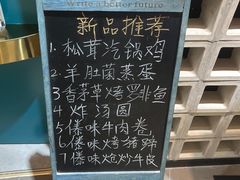 Write a better future
新品推荐
1.松茸汽锅鸡
2.羊肚菌蒸蛋
3香茅草烤罗非鱼
4炸汤圆
5傣味牛肉卷
6傣味烤猪蹄
7傣味炝炒牛皮